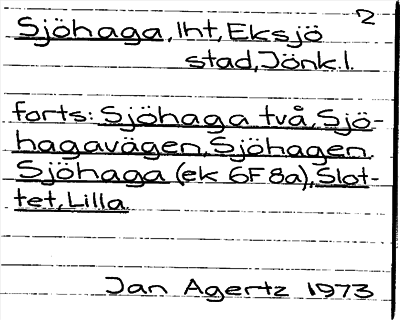 2
Sjöhaga, lht, Eksjö
stad, Jönk.l.
forts: Sjöhaga två, Sjö-
hagavägen, Sjöhagen,
Sjöhaga (ek 6F 8a), Slot-
tet, Lilla
Jan Agertz 1973